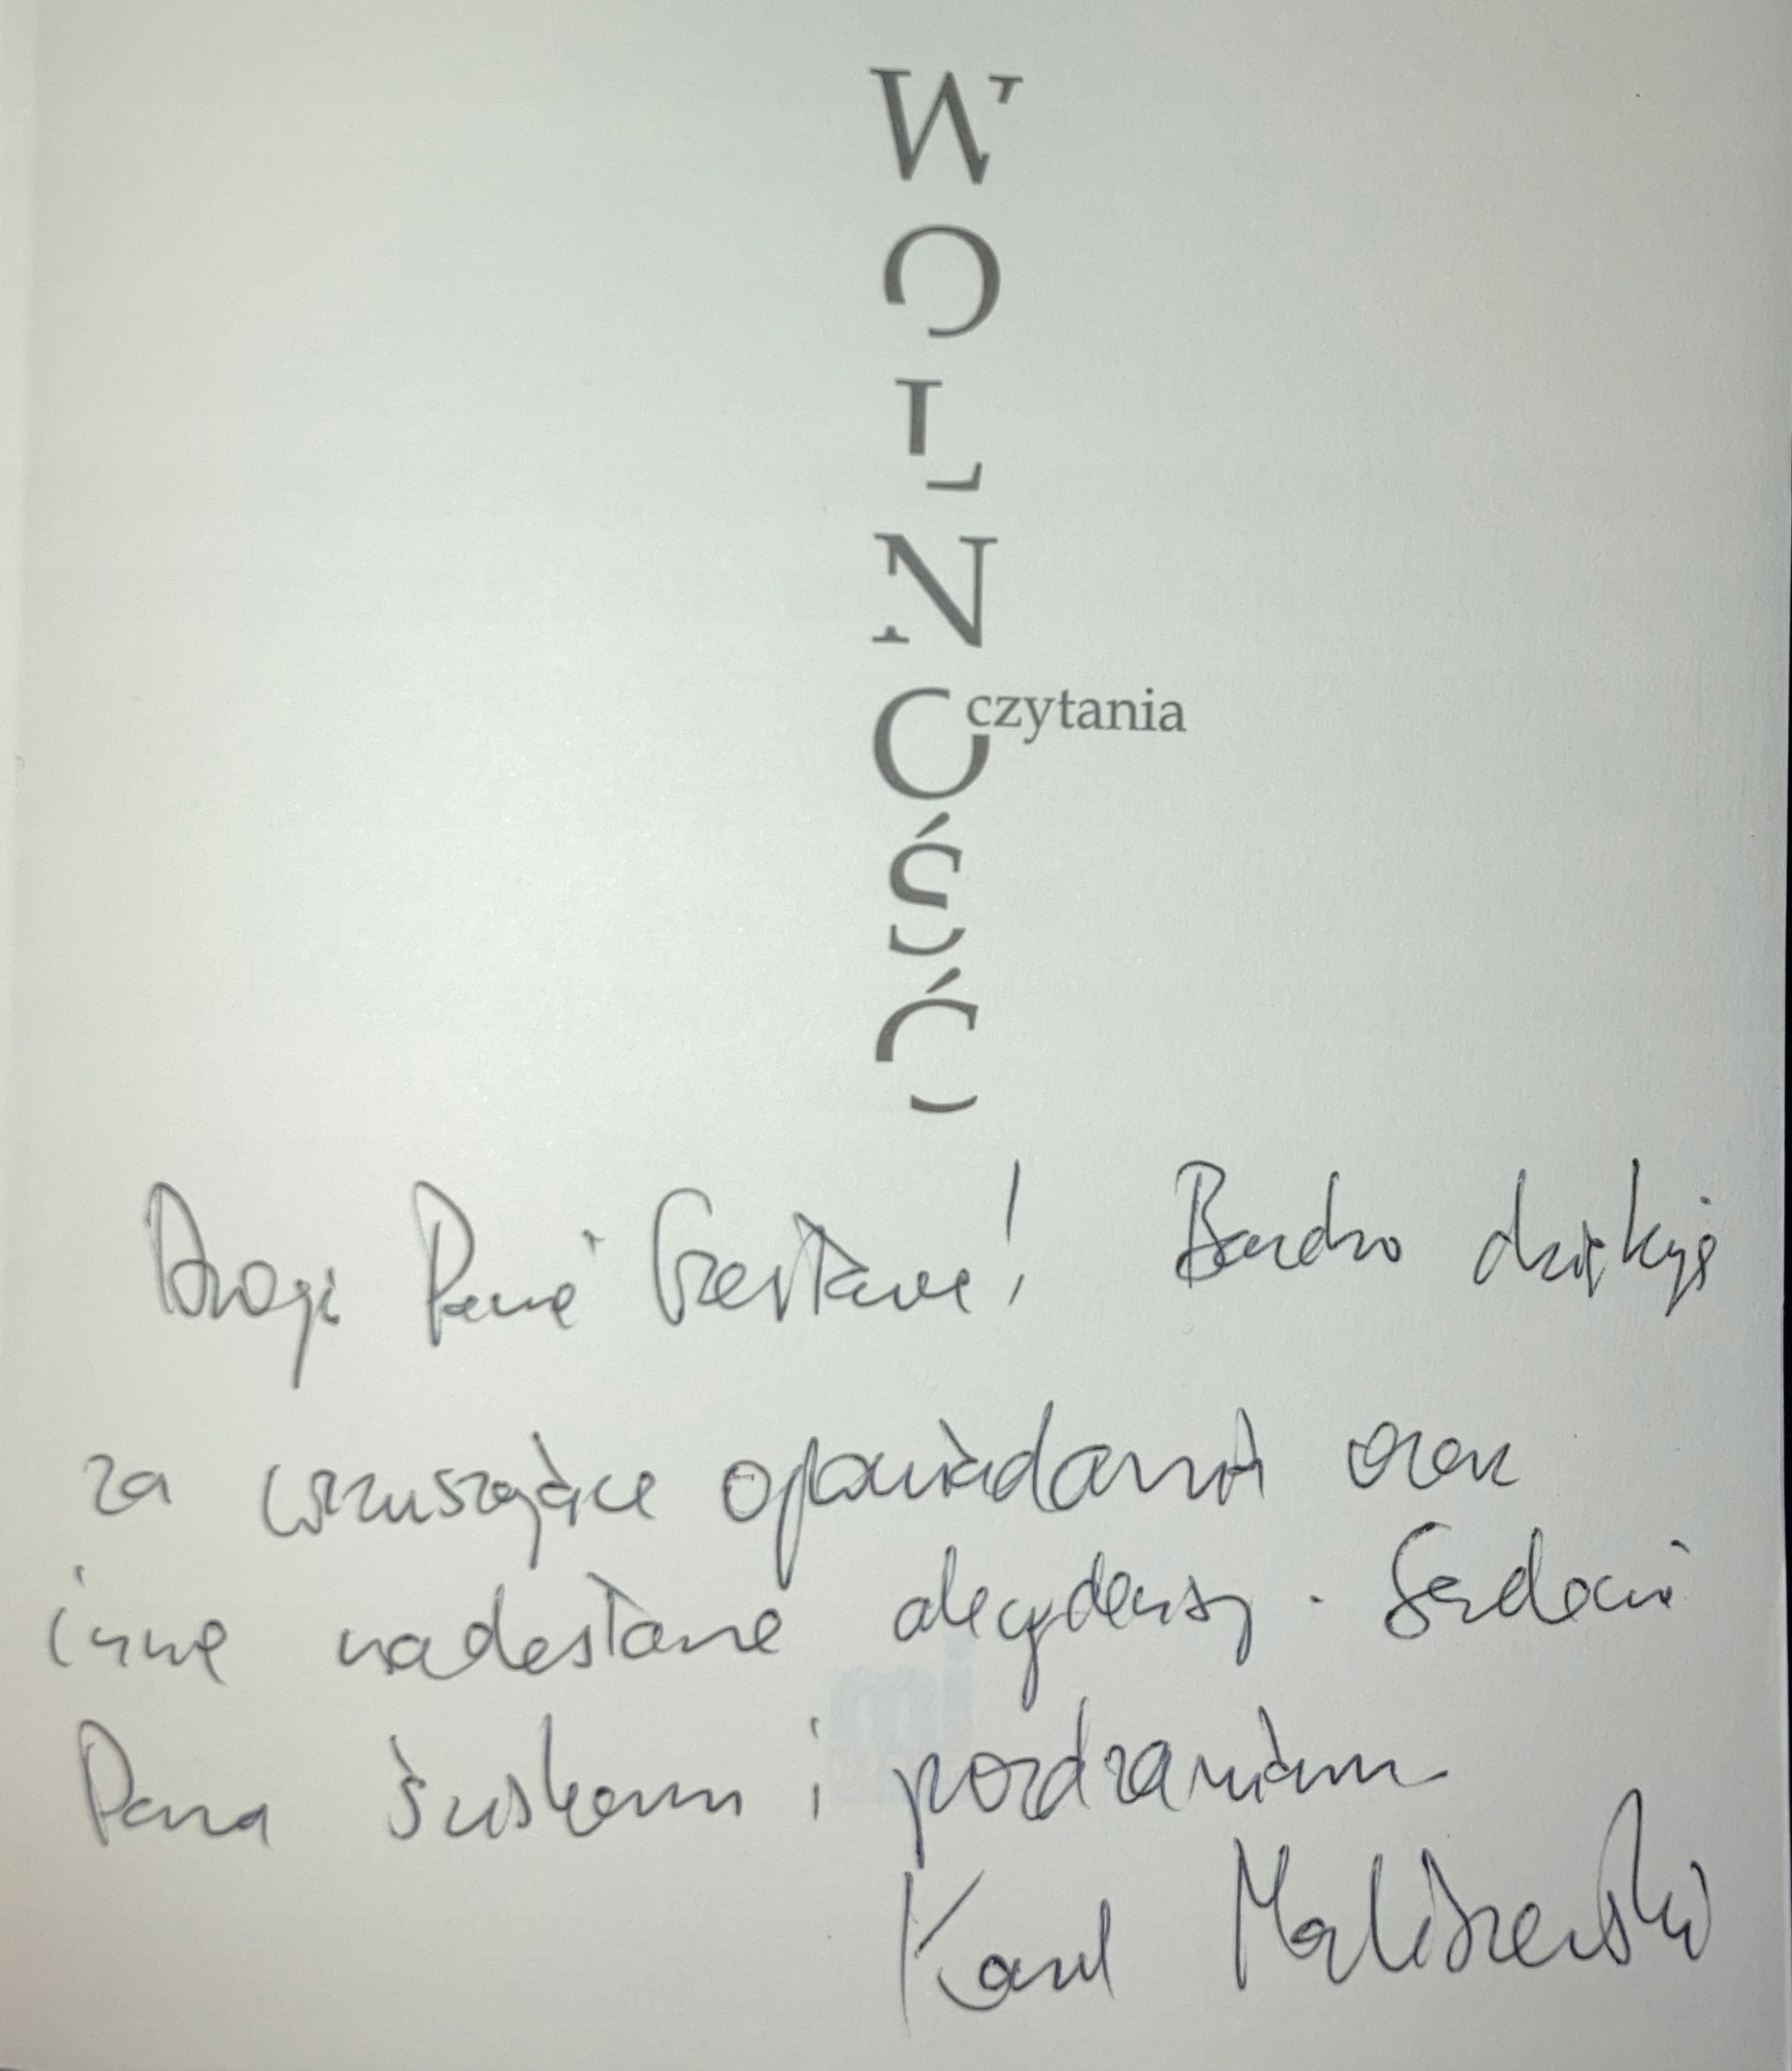 WOLNOŚĆ
czytania
Drogi Panie Czesławie! Bardzo dziękuję
za wzruszające opowiadania oraz
inne nadesłane. Serdecznie
Pana ściskam i pozdrawiam
Karol Maliszewski